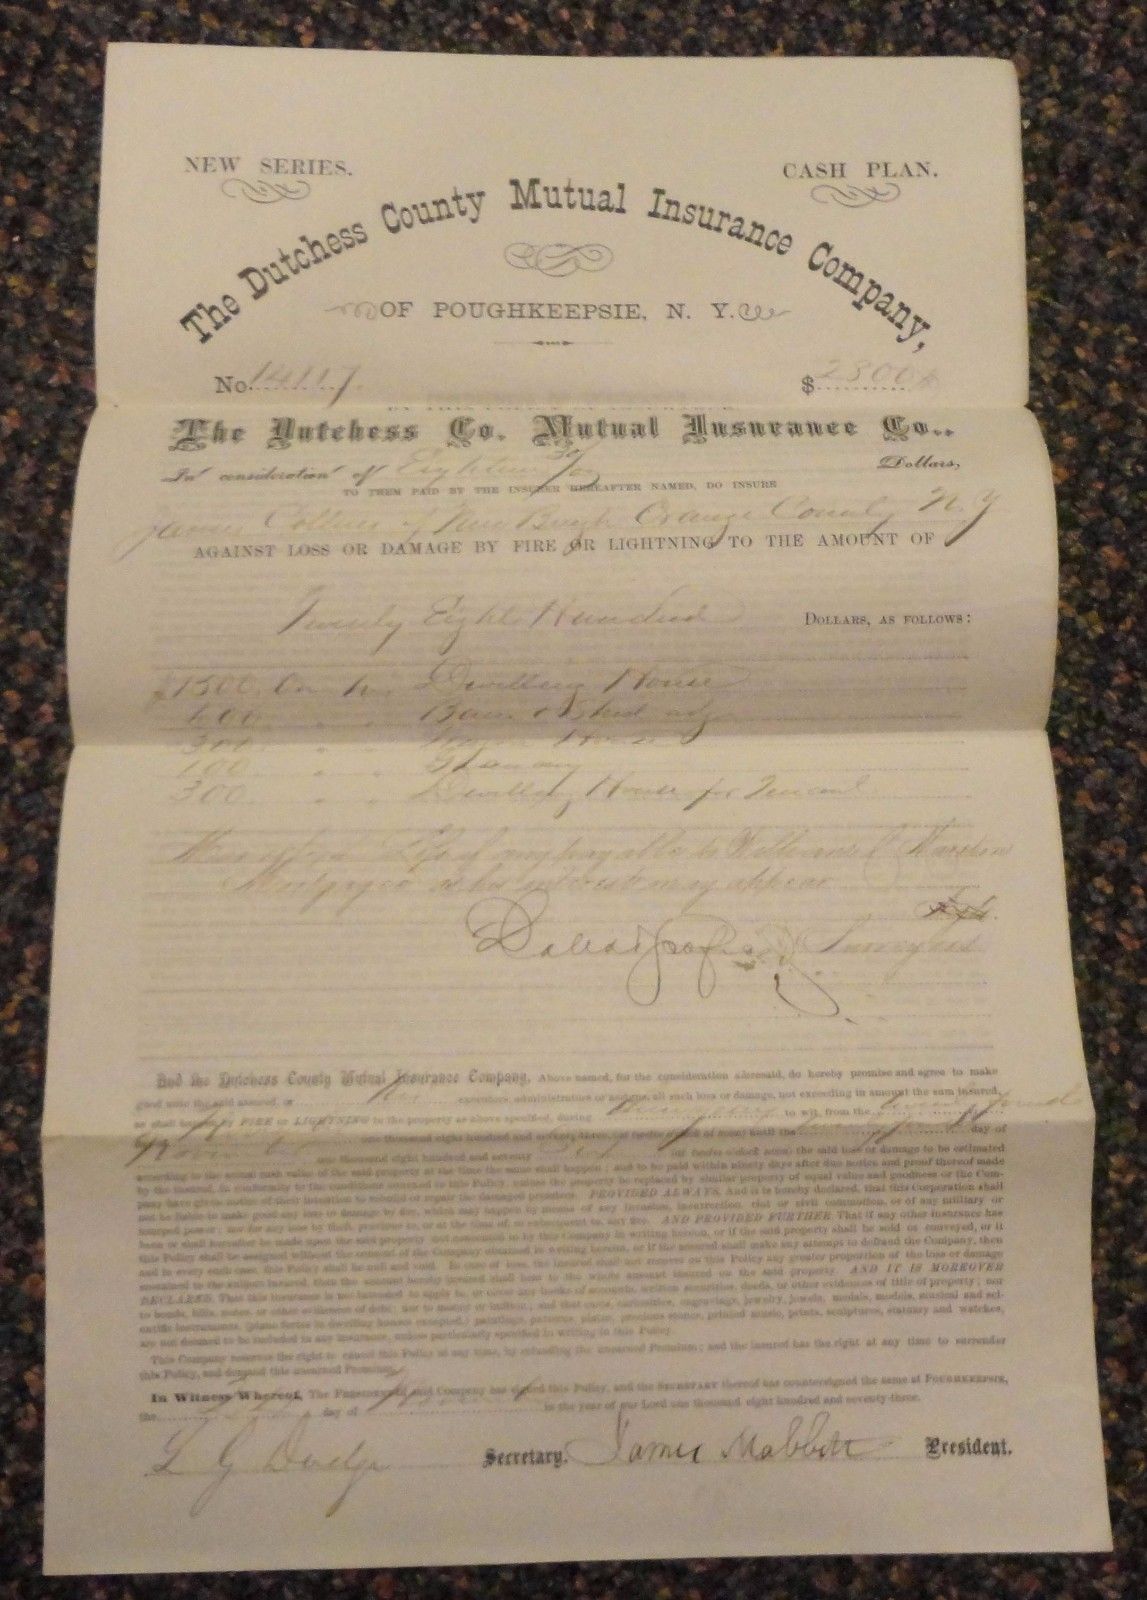 NEW SERIES.
CASH PLAN.
The Dutchess County Mutual Insurance Company,
OF POUGHKEEPSIE, N. Y.
No. 14117.
$ 2800
The Dutchess Co. Mutual Insurance Co.,
In consideration of Eighteen Dollars,
TO THEM PAID BY THE INSURER HEREAFTER NAMED, DO INSURE
James Collins of New Burgh Orange County N. Y
AGAINST LOSS OR DAMAGE BY FIRE OR LIGHTNING TO THE AMOUNT OF
Twenty Eight Hundred DOLLARS, AS FOLLOWS:
$1500 On his Dwelling House
600 " " Barn & Shed adj
300 " " House
100 " "
300 " " Dwelling House for Tenant
Loss if any payable to William
Mortgagee as his interest may appear
Surveyor
And the Dutchess County Mutual Insurance Company, Above named, for the consideration aforesaid, do hereby promise and agree to make
good unto the said assured, or his executors, administrators or assigns, all such loss or damage, not exceeding in amount the sum insured,
as shall happen by FIRE or LIGHTNING to the property as above specified, during to wit, from the
one thousand eight hundred and seventy-three, (at twelve o'clock at noon) until the day of
one thousand eight hundred and seventy (at twelve o'clock noon) the said loss or damage to be estimated
according to the actual cash value of the said property at the time the same shall happen; and to be paid within ninety days after due notice and proof thereof made
by the insured, in conformity to the conditions annexed to this Policy, unless the property be replaced by similar property of equal value and goodness or the Com-
pany have given notice of their intention to rebuild or repair the damaged premises. PROVIDED ALWAYS, And it is hereby declared, that this Corporation shall
not be liable to make good any loss or damage by fire, which may happen by means of any invasion, insurrection, riot or civil commotion, or of any military or
usurped power; nor for any loss by theft, previous to, or at the time of, or subsequent to, any fire. AND PROVIDED FURTHER That if any other insurance has
been or shall hereafter be made upon the said property not consented to by this Company in writing hereon, or if the said property shall be sold or conveyed, or if
this Policy shall be assigned without the consent of the Company obtained in writing hereon, or if the assured shall make any attempt to defraud the Company, then
and in every such case, this Policy shall be null and void. In case of loss, the insured shall not recover on this Policy any greater proportion of the loss or damage
sustained to the subject insured, than the amount hereby insured shall bear to the whole amount insured on the said property. AND IT IS MOREOVER
DECLARED, That this insurance is not intended to apply to, or cover any books of accounts, written securities, deeds, or other evidences of title of property; nor
to bonds, bills, notes, or other evidence of debt; nor to money or bullion; and that curiosities, engravings, jewelry, jewels, medals, models, musical and sci-
entific instruments, (piano fortes in dwelling houses excepted,) paintings, patterns, plate, precious stones, printed music, prints, sculptures, statuary and watches,
are not deemed to be included in any insurance, unless particularly specified in writing in this Policy.
This Company reserves the right to cancel this Policy at any time, by refunding the unearned Premium; and the insured has the right at any time to surrender
this Policy, and demand this unearned Premium.
In Witness Whereof, The PRESIDENT of said Company has signed this Policy, and the SECRETARY thereof has countersigned the same at POUGHKEEPSIE,
the day of in the year of our Lord one thousand eight hundred and seventy-three.
L G Dodge Secretary. James Mabbett President.